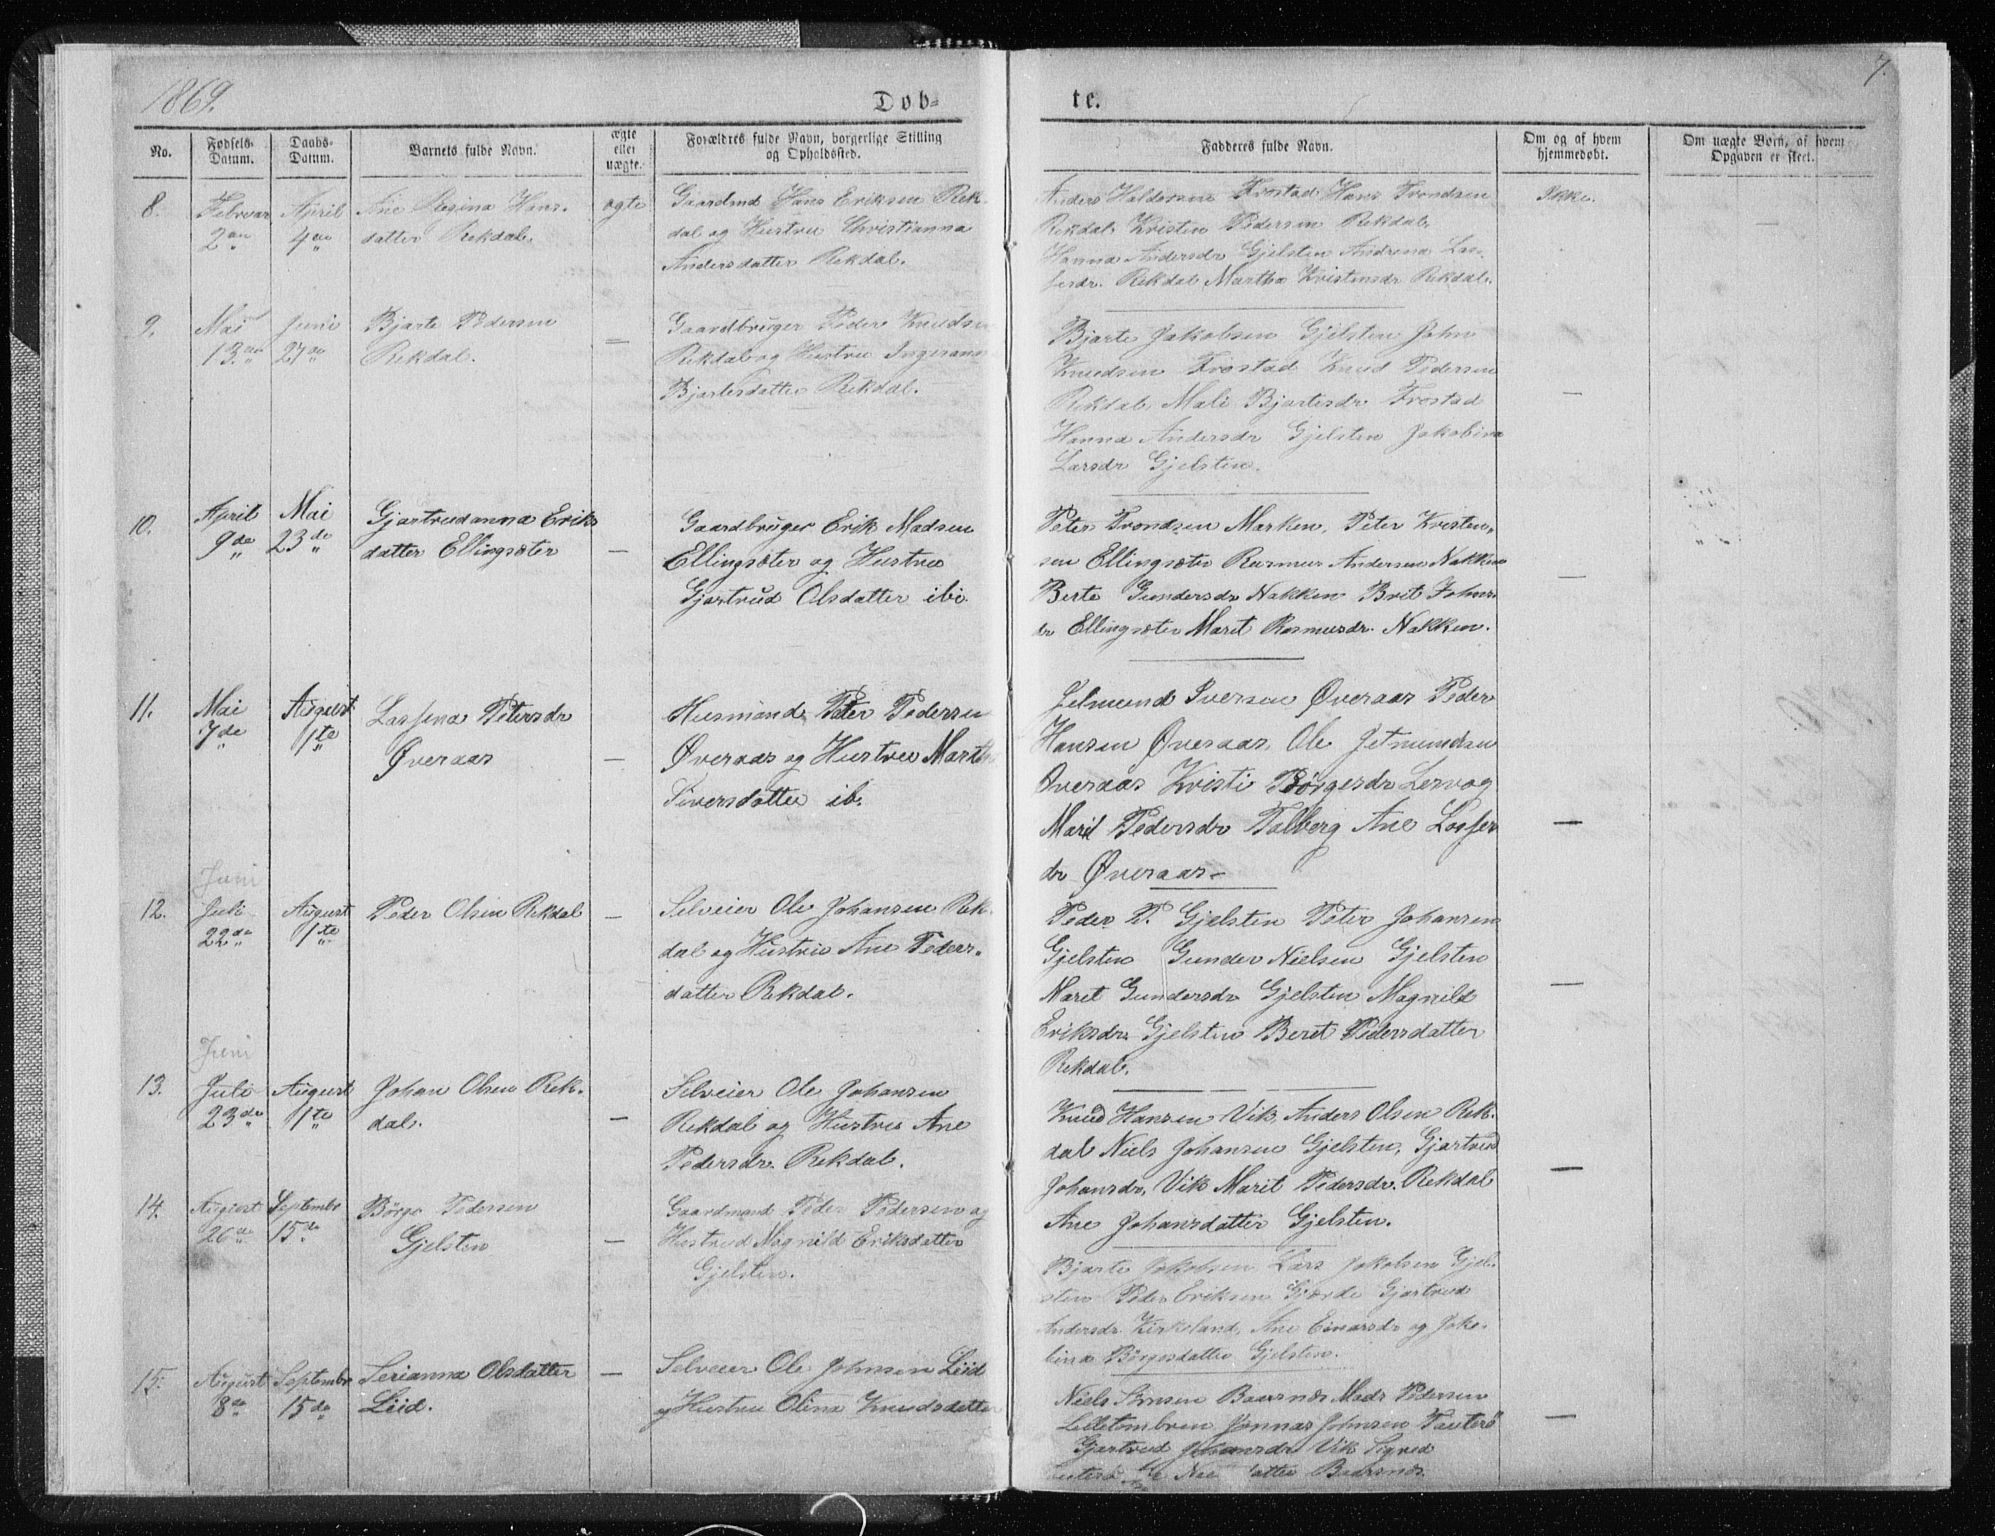 1869.
7.
Døb-
te.
No.
Fødsels-
Datum.
Daabs-
Datum.
Barnets fulde Navn.
ægte
eller
uægte.
Forældres fulde Navn, borgerlige Stilling
og Opholdssted.
Fadderes fulde Navn.
Om og af hvem
hjemmedøbt.
Om uægte Børn, af hvem
Opgaven er skeet.
8.
Februar
2den
April
4de
Ane Regina Hans-
datter Rekdal.
ægte
Gaardmd Hans Eriksen Rek-
dal og Hustru Christianna
Andersdatter Rekdal.
Anders Haldorsen Frostad Hans Trondsen
Rekdal. Kristen Pedersen Rekdal.
Hanna Andersdr Gjelsten Andrena Las-
sesdr. Rekdal Martha Kristensdr Rekdal.
Ikke.
9.
Mai
13de
Juni
27de
Bjarte Pedersen
Rekdal.
Gaardbruger Peder Knudsen
Rekdal og Hustru Ingeranna
Bjartesdatter Rekdal.
Bjarte Jakobsen Gjelsten John
Knudsen Frostad Knud Pedersen
Rekdal, Mali Bjartesdr Frostad
Hanna Andersdr Gjelsten Jakobina
Larsdr Gjelsten.
—
10.
April
9de
Mai
23de
Gjartrudanna Eriks
datter Ellingsæter
—
Gaardbruger Erik Madsen
Ellingsæter og Hustru
Gjartrud Olsdatter ibi.
Peter Trondsen Marken, Peter Kristen-
sen Ellingsæter Rasmus Andersen Nakken
Berte Gundersdr Nakken Brit Johns
dr Ellingsæter Marit Rasmusdr. Nakken.
—
11.
Mai
7de
August
1te
Lassena Petersdr
Øveraas
—
Husmand Peter Pedersen
Øveraas og Hustru Martha
Siversdatter ib.
Jetmund Iversen Øveraas Peder
Hansen Øveraas, Ole Jetmundsen
Øveraas Kristi Børgesdr Lervog
Marit Pedersdr Talberg Ane Lasses
dr Øveraas—
—
12.
Juni
Juli
22de
August
1te
Peder Olsen Rekdal
—
Selveier Ole Johansen Rek-
dal og Hustru Ane Peders-
datter Rekdal.
Peder P. Gjelsten Peter Johansen
Gjelsten Gunder Nielsen Gjelsten
Marit Gundersdr Gjelsten Magnild
Eriksdr. Gjelsten Beret Pedersdatter
Rekdal.
—
13.
Juni
Juli
23de
August
1te
Johan Olsen Rek-
dal.
—
Selveier Ole Johansen
Rekdal og Hustru Ane
Pedersdr. Rekdal.
Knud Hansen Vik, Anders Olsen Rek-
dal Niels Johansen Gjelsten, Gjartrud
Johansdr. Vik Marit Pedersdr. Rekdal
Ane Johansdatter Gjelsten.
—
14.
August
26de
Septembr
15de
Børge Pedersen
Gjelsten
—
Gaardmand Peder Pedersen og
Hustrud Magnild Eriksdatter
Gjelsten.
Bjarte Jakobsen Lars Jakobsen Gjel-
sten Peder Eriksen Gjærde Gjartrud
Andersdr. Kirkeland, Ane Einarsdr og Jako-
bina Børgesdatter Gjelsten.
15.
August
8de
Septembr
15de
Serianna Olsdatter
Liid.
—
Selveier Ole Johnsen Liid
og Hustru Olina Knudsdatter
Niels Baarsnæs Mads Pedersen
Jonnas Johnsen Tauterø
Gjartrud Johansdr Vik Sigrid
datter Baarsnæs.
—